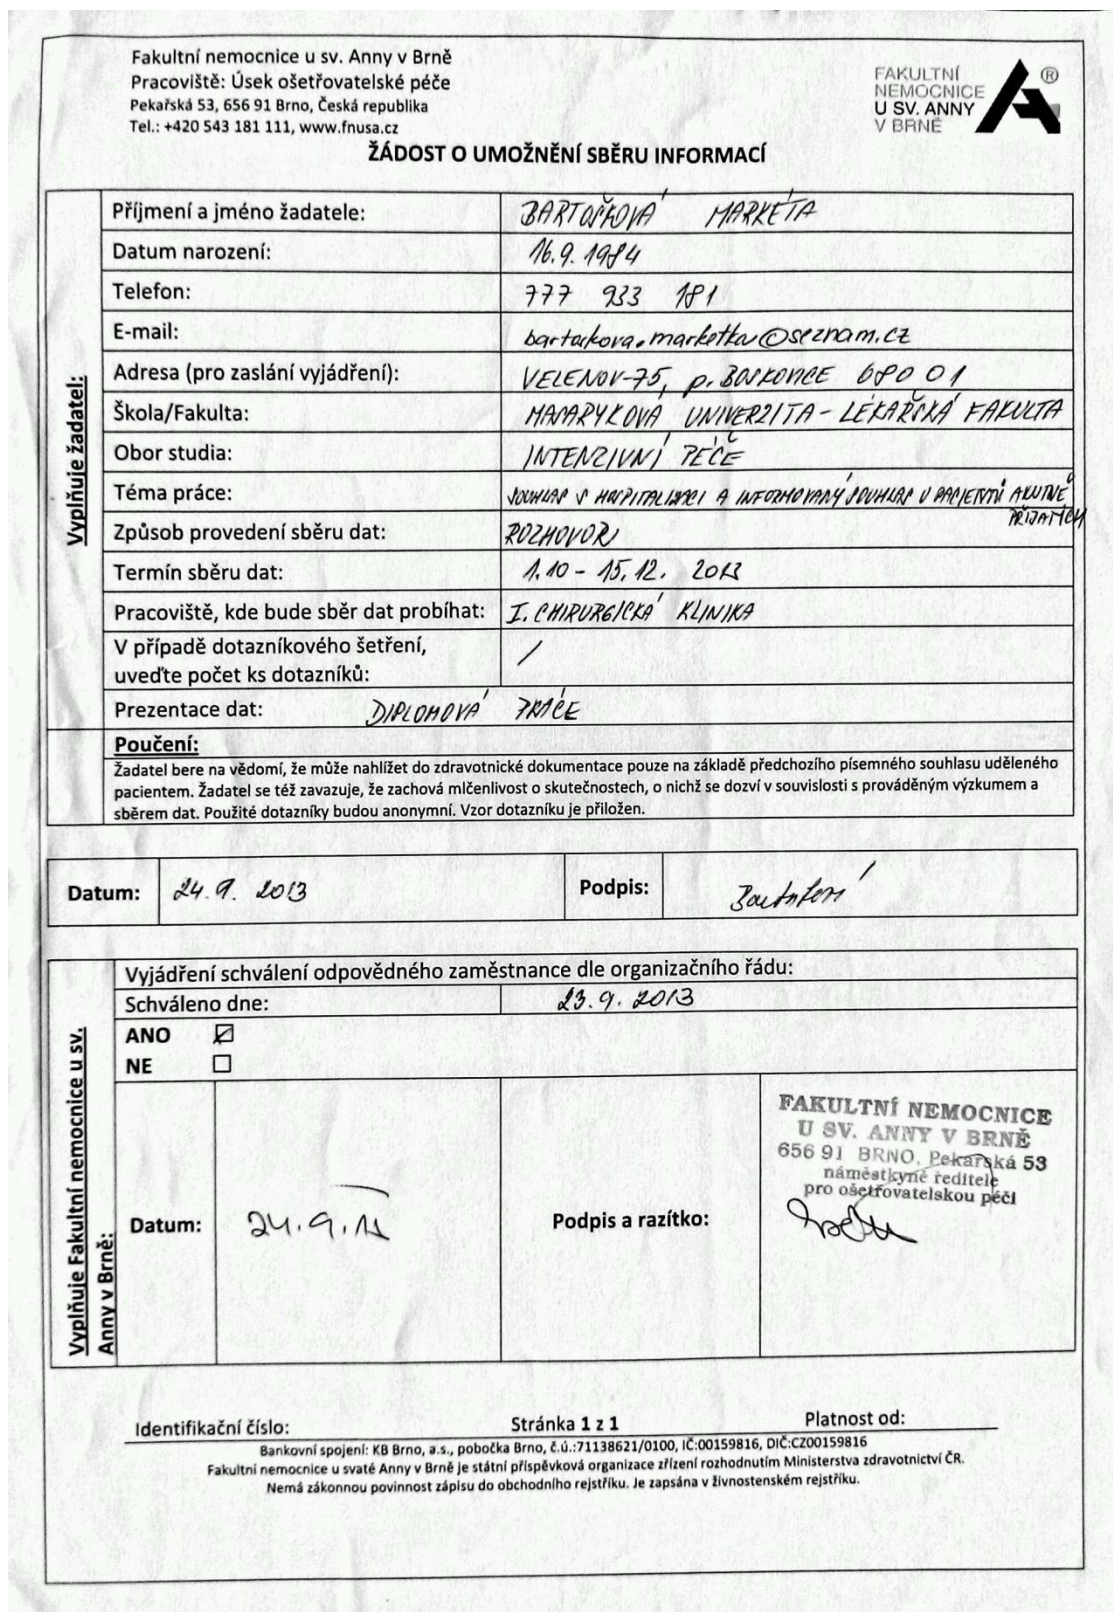 Fakultní nemocnice u sv. Anny v Brně
Pracoviště: Úsek ošetřovatelské péče
Pekařská 53, 656 91 Brno, Česká republika
Tel.: +420 543 181 111, www.fnusa.cz
FAKULTNÍ
NEMOCNICE
U SV. ANNY
V BRNĚ
®
ŽÁDOST O UMOŽNĚNÍ SBĚRU INFORMACÍ
Vyplňuje žadatel:
Příjmení a jméno žadatele: BARTOŠKOVÁ MARKÉTA
Datum narození: 16.9.1984
Telefon: 777 933 181
E-mail: bartoskova.marketka@seznam.cz
Adresa (pro zaslání vyjádření): VELENOV-75, p. BOSKOVICE 680 01
Škola/Fakulta: MASARYKOVA UNIVERZITA - LÉKAŘSKÁ FAKULTA
Obor studia: INTENZIVNÍ PÉČE
Téma práce: SOUHLAS S HOSPITALIZACI A INFORMOVANÝ SOUHLAS U PACIENTŮ AKUTNĚ
PŘIJATÝCH
Způsob provedení sběru dat: ROZHOVOR
Termín sběru dat: 1.10 - 15.12. 2013
Pracoviště, kde bude sběr dat probíhat: I. CHIRURGICKÁ KLINIKA
V případě dotazníkového šetření, /
uveďte počet ks dotazníků:
Prezentace dat: DIPLOMOVÁ PRÁCE
Poučení:
Žadatel bere na vědomí, že může nahlížet do zdravotnické dokumentace pouze na základě předchozího písemného souhlasu uděleného
pacientem. Žadatel se též zavazuje, že zachová mlčenlivost o skutečnostech, o nichž se dozví v souvislosti s prováděným výzkumem a
sběrem dat. Použité dotazníky budou anonymní. Vzor dotazníku je přiložen.
Datum: 24.9. 2013 Podpis:
Vyplňuje Fakultní nemocnice u sv.
Anny v Brně:
Vyjádření schválení odpovědného zaměstnance dle organizačního řádu:
Schváleno dne: 23.9.2013
ANO
NE
Datum: 24.9. Podpis a razítko:
FAKULTNÍ NEMOCNICE
U SV. ANNY V BRNĚ
656 91 BRNO, Pekařská 53
náměstkyně ředitele
pro ošetřovatelskou péči
Identifikační číslo: Stránka 1 z 1 Platnost od:
Bankovní spojení: KB Brno, a.s., pobočka Brno, č.ú.:71138621/0100, IČ:00159816, DIČ:CZ00159816
Fakultní nemocnice u svaté Anny v Brně je státní příspěvková organizace zřízení rozhodnutím Ministerstva zdravotnictví ČR.
Nemá zákonnou povinnost zápisu do obchodního rejstříku. Je zapsána v živnostenském rejstříku.